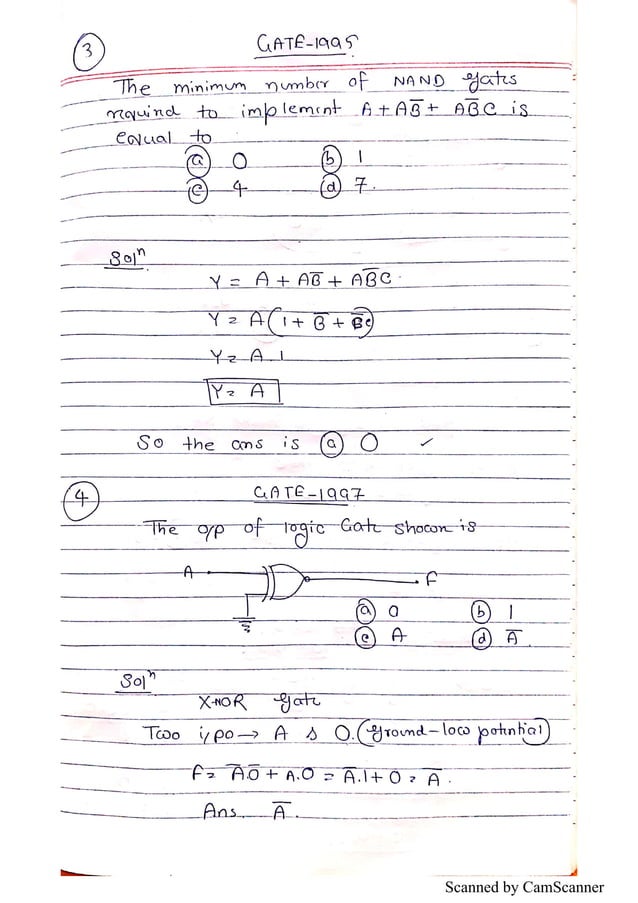 3
GATE-1995
The minimum number of NAND gates
required to implement A + AB̅ + AB̅C is
equal to
a 0 b 1
c 4 d 7.
Solⁿ
Y = A + AB̅ + AB̅C.
Y = A(1 + B̅ + B̅C)
Y = A.1
Y = A
So the ans is a 0 ✓
4
GATE-1997
The o/p of logic Gate shown is
A F
a 0 b 1
c A d A̅.
Solⁿ
X-NOR gate
Two i/ps → A & 0. (ground-low potential)
F = A̅.0̅ + A.0 = A̅.1 + 0 = A̅.
Ans. A̅.
Scanned by CamScanner